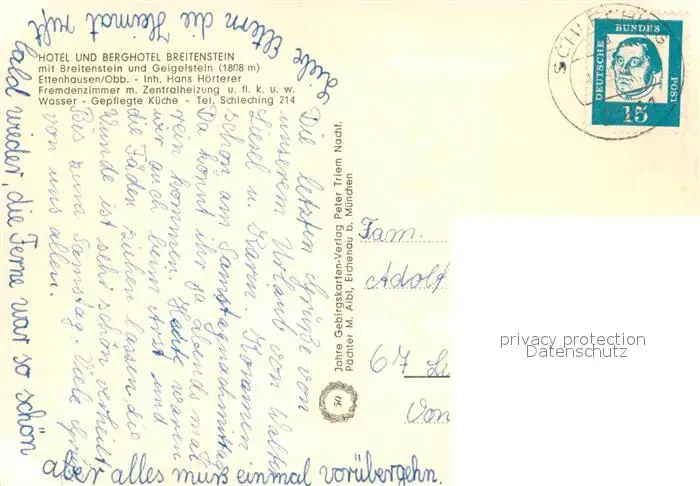 HOTEL UND BERGHOTEL BREITENSTEIN
mit Breitenstein und Geigelstein (1808 m)
Ettenhausen/Obb. - Inh. Hans Hörterer
Fremdenzimmer m. Zentralheizung u. fl. k. u. w.
Wasser - Gepflegte Küche - Tel. Schleching 214
Liebe Eltern die Heimat ruft
bald wieder, die Ferne war so schön
aber alles muß einmal vorübergehn.
Die letzten Grüße von
unserem Urlaub von Walter
Liesel u. Karin. Kommen
schon am Samstagnachmittag
Da könnt ihr ja abends mal
rein kommen. Heute waren
wir auch beim Arzt und
die Fäden ziehen lassen, die
Wunde ist sehr schön verheilt.
Bis zum Samstag. Viele Grüße
von uns allen.
Jahre Gebirgskarten-Verlag Peter Triem Nachf.
Pächter M. Aibl, Eichenau b. München
50
DEUTSCHE BUNDES POST
15
Fam.
Adolf
67
Von
privacy protection
Datenschutz